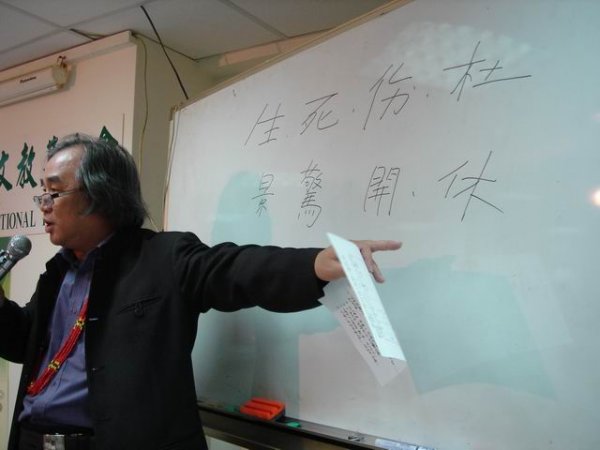 生.死.伤.杜
景 驚 開.休
文教
TIONAL